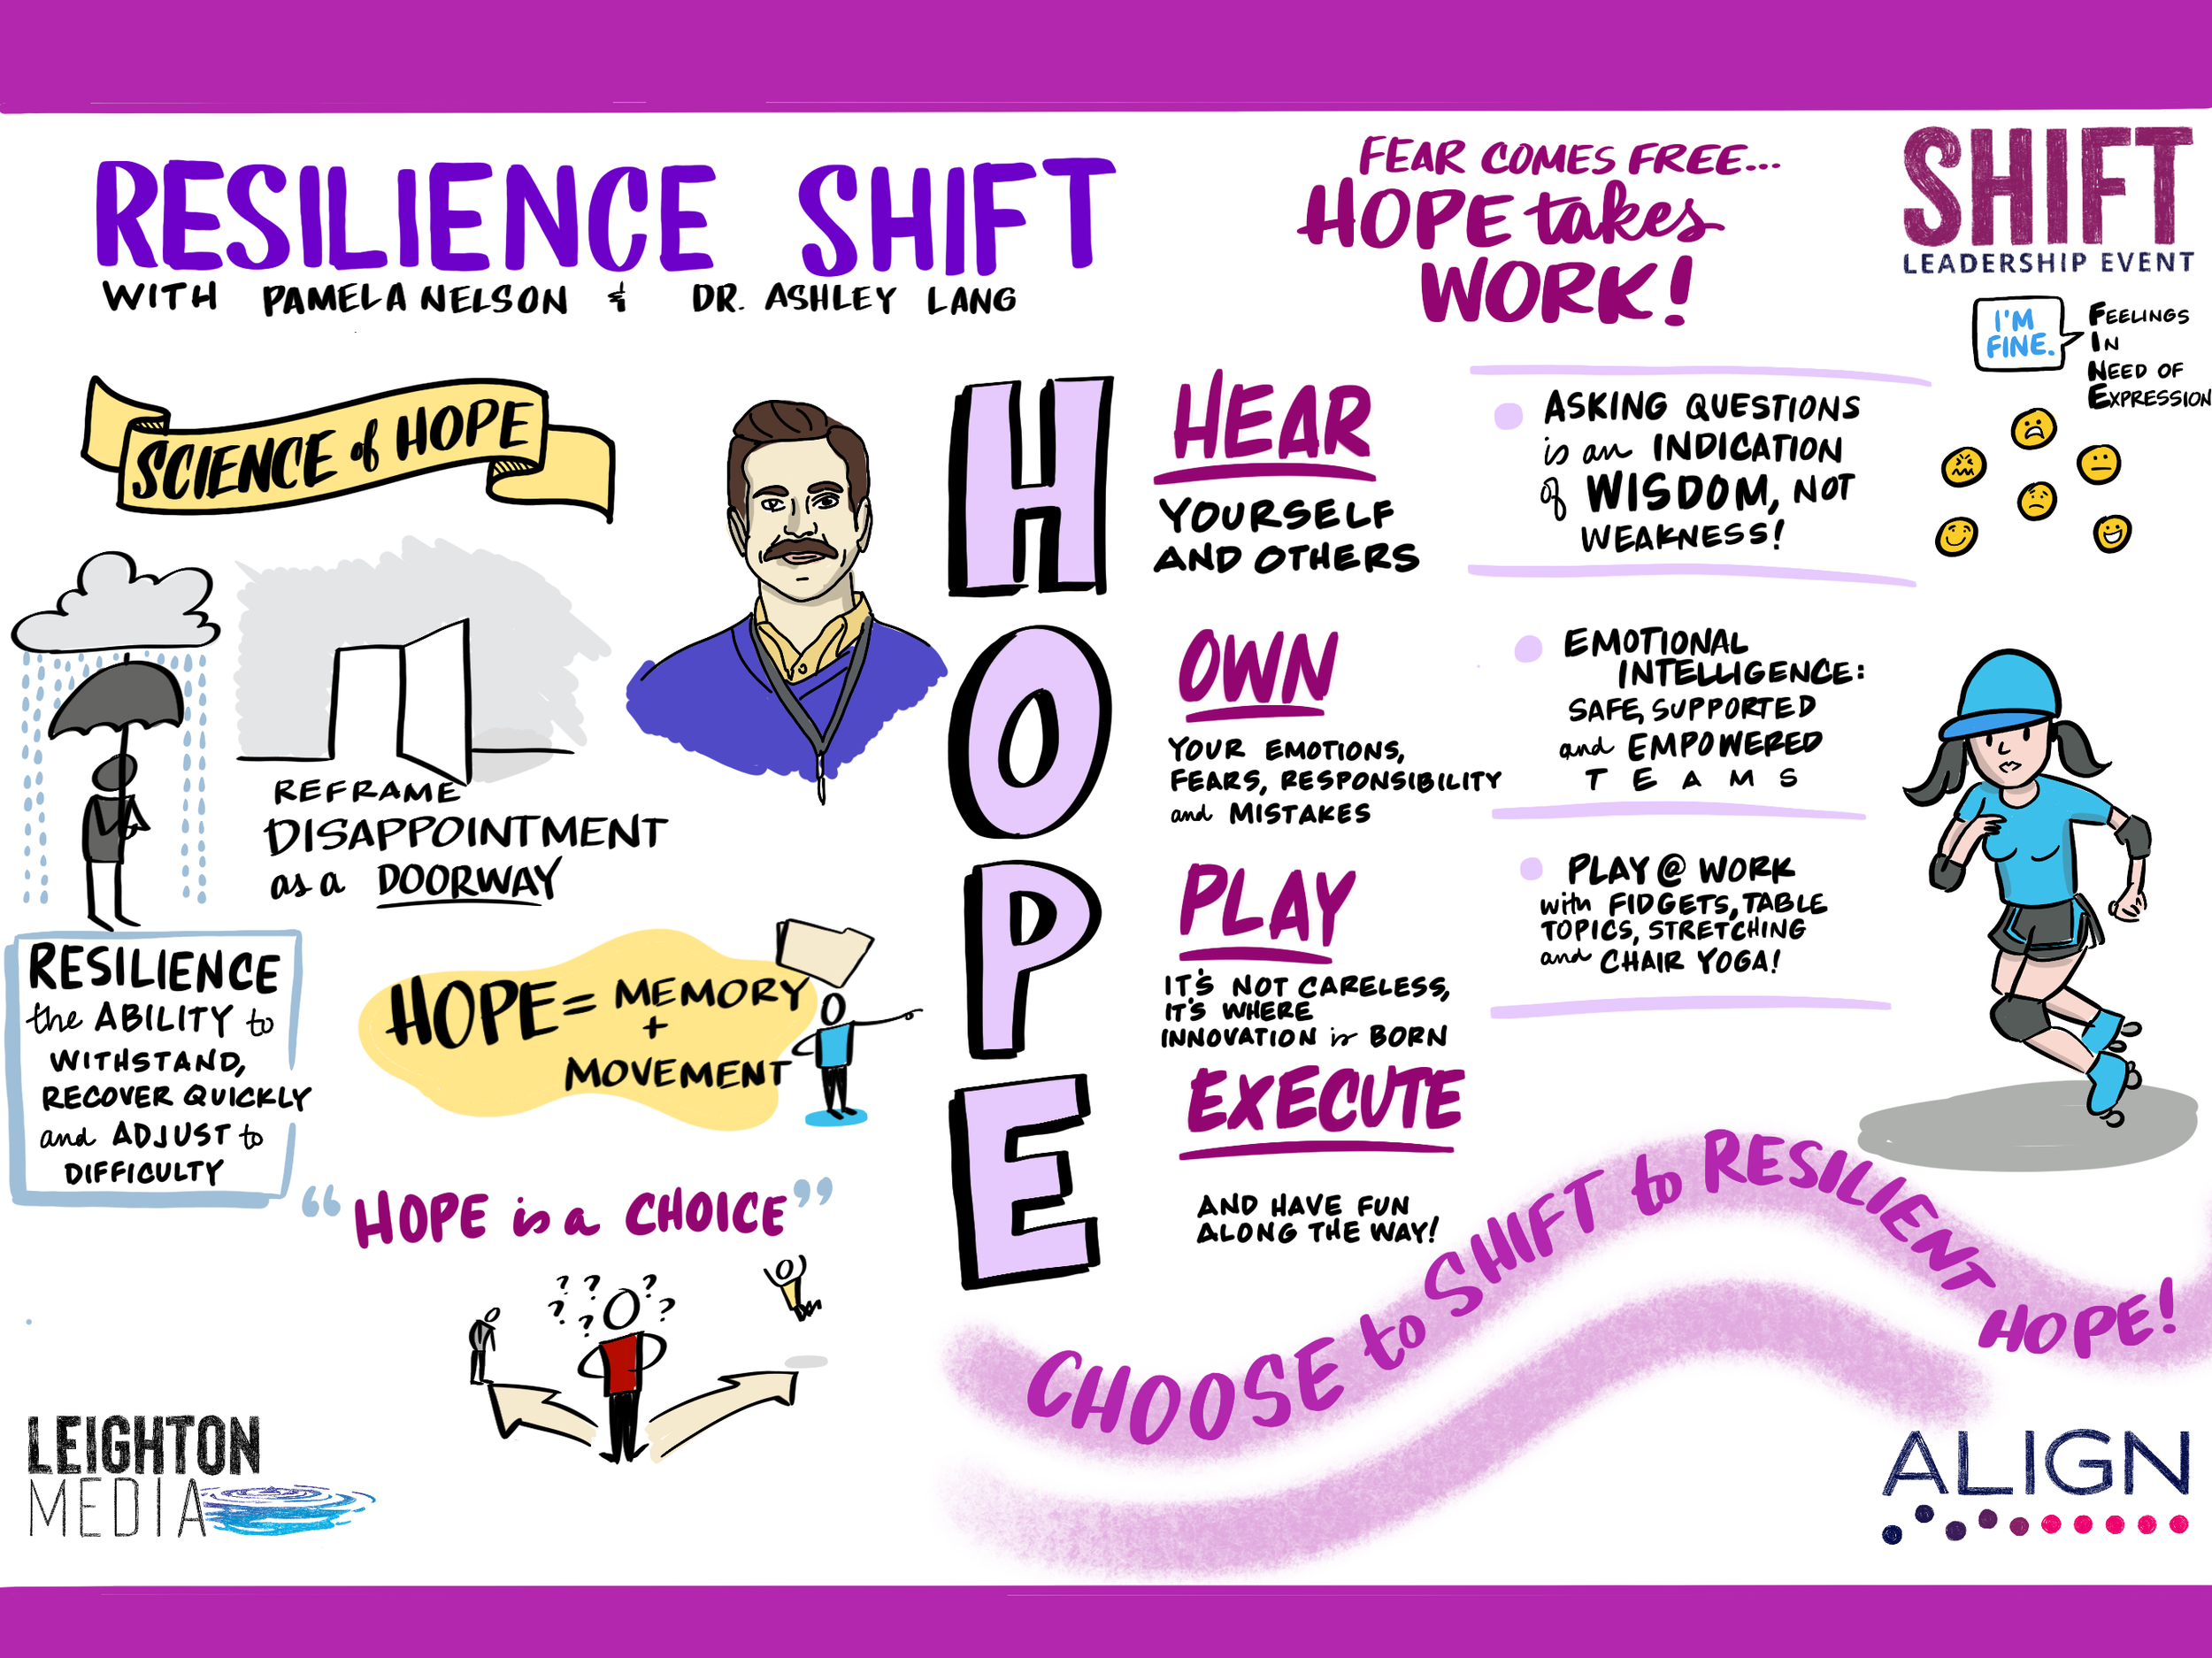 RESILIENCE SHIFT
WITH PAMELA NELSON & DR. ASHLEY LANG
FEAR COMES FREE...
HOPE takes
WORK!
SHIFT
LEADERSHIP EVENT
I'M
FINE.
FEELINGS
IN
NEED OF
EXPRESSION
SCIENCE of HOPE
REFRAME
DISAPPOINTMENT
as a DOORWAY
RESILIENCE
the ABILITY to
WITHSTAND,
RECOVER QUICKLY
and ADJUST to
DIFFICULTY
HOPE = MEMORY
+
MOVEMENT
"HOPE is a CHOICE"
? ? ?
? ? ?
H
HEAR
YOURSELF
AND OTHERS
O
OWN
YOUR EMOTIONS,
FEARS, RESPONSIBILITY
and MISTAKES
P
PLAY
IT'S NOT CARELESS,
IT'S WHERE
INNOVATION is BORN
E
EXECUTE
AND HAVE FUN
ALONG THE WAY!
ASKING QUESTIONS
is an INDICATION
of WISDOM, NOT
WEAKNESS!
EMOTIONAL
INTELLIGENCE:
SAFE, SUPPORTED
and EMPOWERED
TEAMS
PLAY @ WORK
with FIDGETS, TABLE
TOPICS, STRETCHING
and CHAIR YOGA!
CHOOSE to SHIFT to RESILIENT HOPE!
LEIGHTON
MEDIA
ALIGN